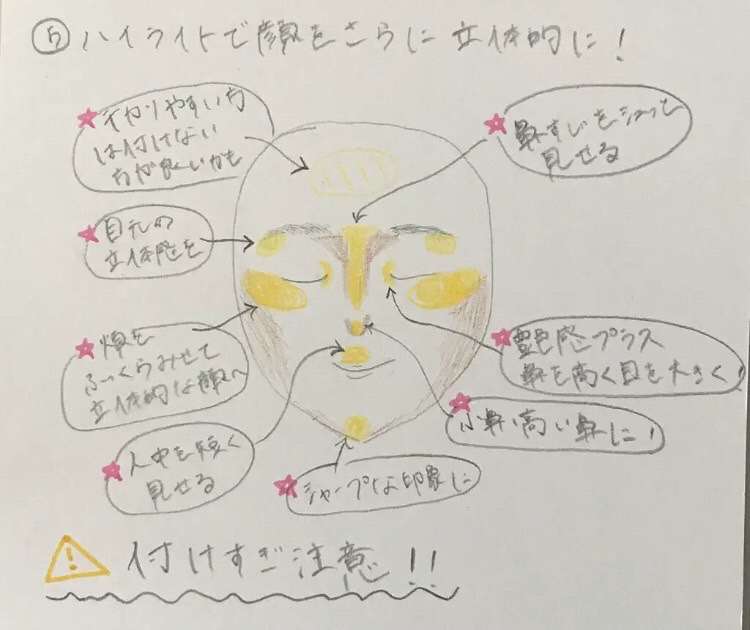 ⑤ ハイライトで顔をさらに立体的に!
テカりやすい方
は付けない
方が良いかも
鼻すじをシュッと
見せる
目元の
立体感を
頬を
ふっくらみせて
立体的な顔へ
艶感プラス
鼻を高く目を大きく!
小鼻い高い鼻に!
人中を短く
見せる
シャープな印象に
付けすぎ注意!!